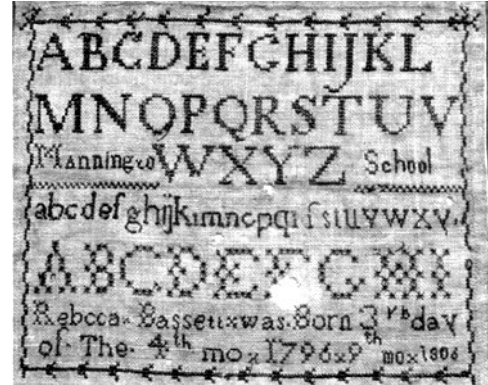 ABCDEFGHIJKL
MNOPQRSTUV
Manningto WXYZ School
abcdefghijklmnopqrſstuvwxy.
ABCDEFGHI
Rebcca× Bassett×was.Born 3 rd day
of The. 4th mo× 1796×9th mo×1806